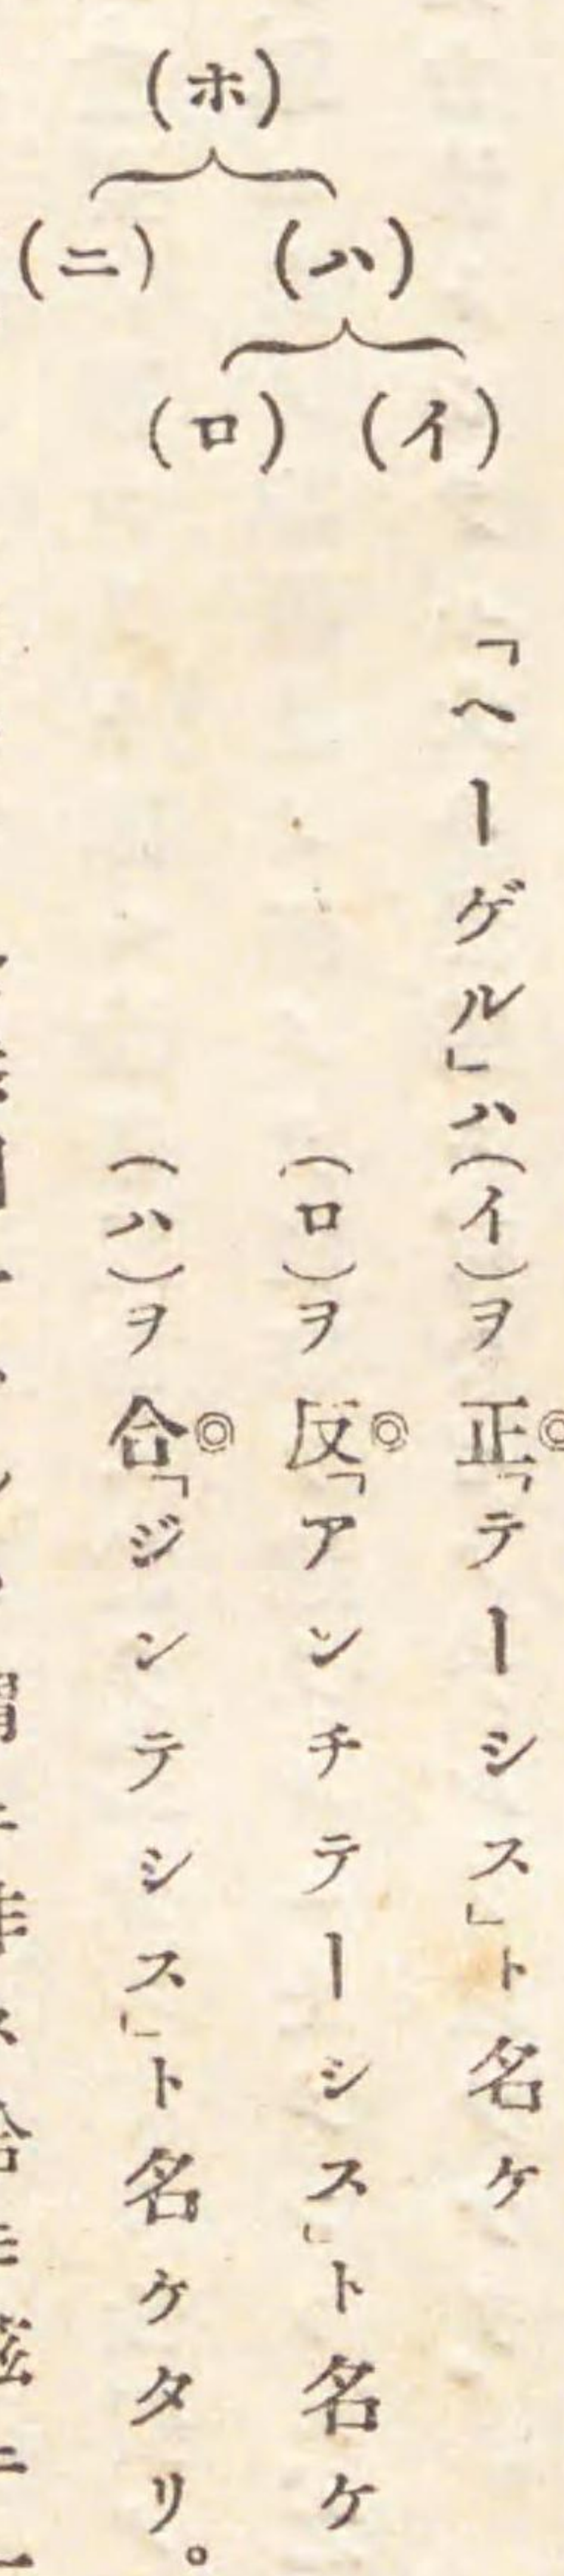 (ホ)
(ハ) (ニ)
(イ) (ロ)
「ヘーゲル」ハ(イ)ヲ正「テーシス」ト名ケ
(ロ)ヲ反「アンチテーシス」ト名ケ
(ハ)ヲ合「ジンテシス」ト名ケタリ。